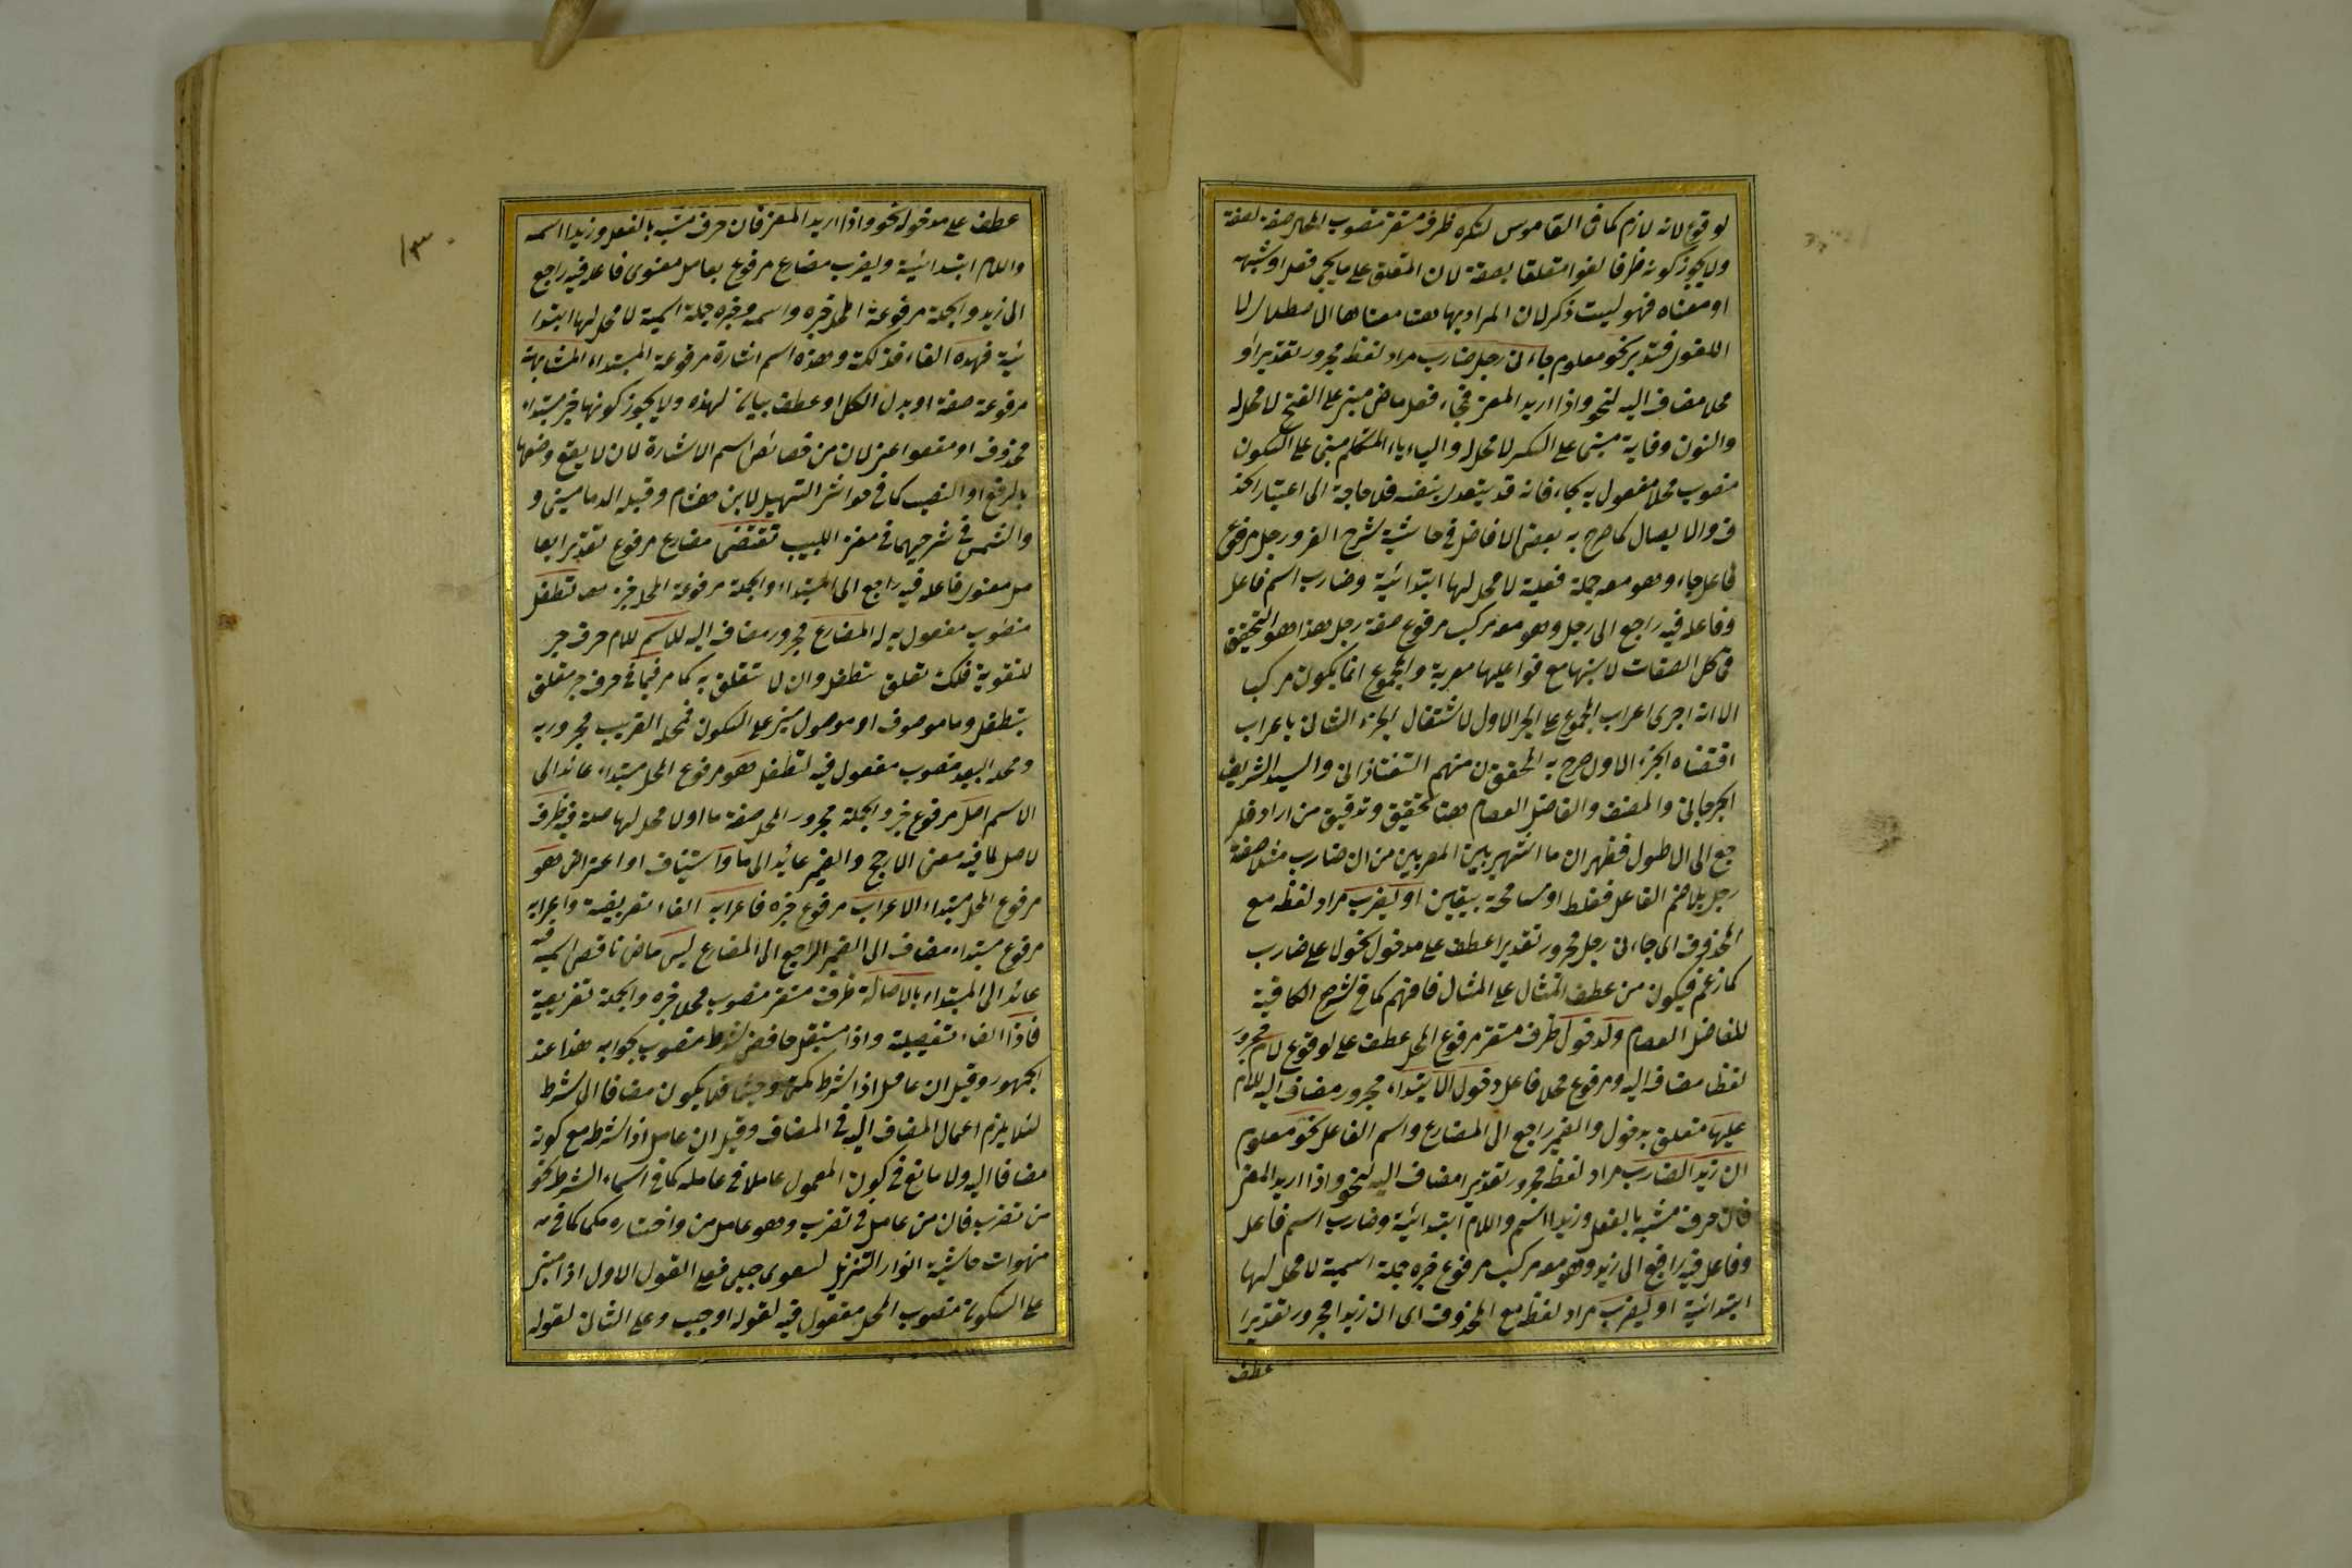 لوقوع لانه لازم كما فى القاموس لنكره ظرف مستقر منصوب المحل صفة لصفة
ولا يجوز كونه ظرفا لغوا متعلقا بصفة لان المتعلق على ما يجى فعل او شبهه
او معناه فهو ليست ذكر لان المراد بها هنا معناها الاصطلاى لا
اللغوى فتدبر نحو معلوم جاءنى رجل ضارب مراد لفظه مجرور تقديرا او
محلا مضاف اليه لنحو واذا اريد المعنى فجاء فعل ماض مبنى على الفتح لا محل له
والنون وقاية مبنى على الكسر لا محل له والياء ياء المتكلم مبنى على السكون
منصوب محلا مفعول به لجاء فانه قد يتعدى بنفسه فلا حاجة الى اعتبار الحذ
ف والايصال كما صرح به بعض الافاضل فى حاشية شرح الغرور رجل مرفوع
فاعل جاء وهو معه جملة فعلية لا محل لها ابتدائية وضارب اسم فاعل
وفاعله فيه راجع الى رجل وهو معه مركب مرفوع صفة رجل هذا هو التحقيق
فى كل الصفات لانها مع فواعلها معربة والمجموع انما يكون مركب
الا انه اجرى اعراب المجموع على الجزء الاول لاشتغال الجزء الثانى باعراب
اقتضاه الجزء الاول صرح به المحققون منهم التفتازانى والسيد الشريف
الجرجانى والمصنف والفاضل العصام هنا تحقيق وتدقيق من اراد فلير
جع الى الاطول فظهر ان ما اشتهر بين المعربين من ان ضارب مثلا صفة
رجل بلا ضم الفاعل فغلط او مسامحة بيقين او ليضرب مراد لفظه مع
المحذوف اى جاءنى رجل مجرور تقديرا عطف على مدخول نحو لا على ضارب
كما زعم فيكون من عطف المثال على المثال فافهم كما فى شرح الكافية
للفاضل العصام ولدخول ظرف مستقر مرفوع المحل عطف على لوقوع لام مجرور
لفظا مضاف اليه ومرفوع محلا فاعل دخول الابتداء مجرور مضاف اليه للام
عليها متعلق بدخول والضمير راجع الى المضارع واسم الفاعل نحو معلوم
ان زيدا لضارب مراد لفظه مجرور تقديرا مضاف اليه لنحو واذا اريد المعنى
فان حرف مشبه بالفعل وزيدا اسم واللام ابتدائية وضارب اسم فاعل
وفاعل فيه راجع الى زيد وهو معه مركب مرفوع خبره جملة اسمية لا محل لها
ابتدائية او ليضرب مراد لفظه مع المحذوف اى ان زيدا مجرور تقديرا
عطف
١٣٠
عطف على مدخول نحو واذا اريد المعنى فان حرف مشبه بالفعل وزيدا اسمه
واللام ابتدائية وليضرب مضارع مرفوع بعامل معنوى فاعله فيه راجع
الى زيد والجملة مرفوعة المحل خبره واسمه وخبره جملة اسمية لا محل لها ابتدا
ئية فهذه الفاء فذلكة وهذه اسم اشارة مرفوعة المبتداء المشابهة
مرفوعة صفة او بدل الكل او عطف بيان لهذه ولا يجوز كونها خبر مبتداء
محذوف او مفعولا اعنى لان من خصائص اسم الاشارة لان لا يقع وصفها
بالرفع او النصب كما فى حواشى التسهيل لابن هشام وقبله الدمامينى و
والشمنى فى شرحيهما فى مغنى اللبيب تقتضى مضارع مرفوع تقديرا بعا
مل معنوى فاعله فيه راجع الى المبتداء والجملة مرفوعة المحل خبره تطفل
منصوب مفعول به له المضارع مجرور مضاف اليه للاسم للام حرف جر
للتقوية فلك تعلق بتطفل وان لا تتعلق به كما مر فيما فى حرف جر متعلق
بتطفل وما موصوف او موصول مبنى على السكون فمحله القريب مجرور به
ومحله البعيد منصوب مفعول فيه لتطفل هو مرفوع المحل مبتداء عائد الى
الاسم اصل مرفوع خبره والجملة مجرور المحل صفة ما او لا محل لها صلة فيه ظرف
لاصل لما فيه معنى الارجح والضمير عائد الى ما واستيناف او اعتراض هو
مرفوع المحل مبتداء الاعراب مرفوع خبره فاعرابه الفاء تفريعية واعرابه
مرفوع مبتداء مضاف الى الضمير الراجع الى المضارع ليس ماض ناقص اسمه فيه
عائد الى المبتداء بالاصالة ظرف مستقر منصوب محلا خبره والجملة تفريعية
فاذا الفاء تفصيلية واذا مستقبل خافض لشرطه منصوب بجوابه هذا عند
الجمهور وقيل ان عامل اذا شرطه كمتى وحيثما فلا يكون مضافا الى شرطه
لئلا يلزم اعمال المضاف اليه فى المضاف وقيل ان عامل اذا شرطه مع كونه
مضافا اليه ولا مانع فى كون المعمول عاملا فى عامله كما فى اسماء الشرط نحو
من تضرب فان من عامل فى تضرب وهو عامل من واختاره مكى كما فى
منهوات حاشية انوار التنزيل لسعدى جلبى فعلى القول الاول اذا مبنى
على السكون منصوب المحل مفعول فيه لقوله اوجب وعلى الثانى لقوله